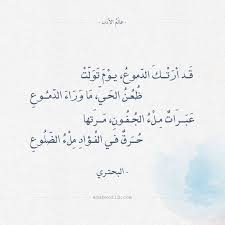 عالم الأدب
قَد أرَتْكَ الدّموعُ، يوْمَ تَوَلّتْ
ظُعُنُ الحَيّ، مَا وَرَاءَ الدّمُوعِ
عَبَرَاتٌ مِلْءُ الجُفُونِ، مَرَتها
حُرَقٌ في الفُؤادِ مِلْءُ الضّلُوعِ
- البحتري